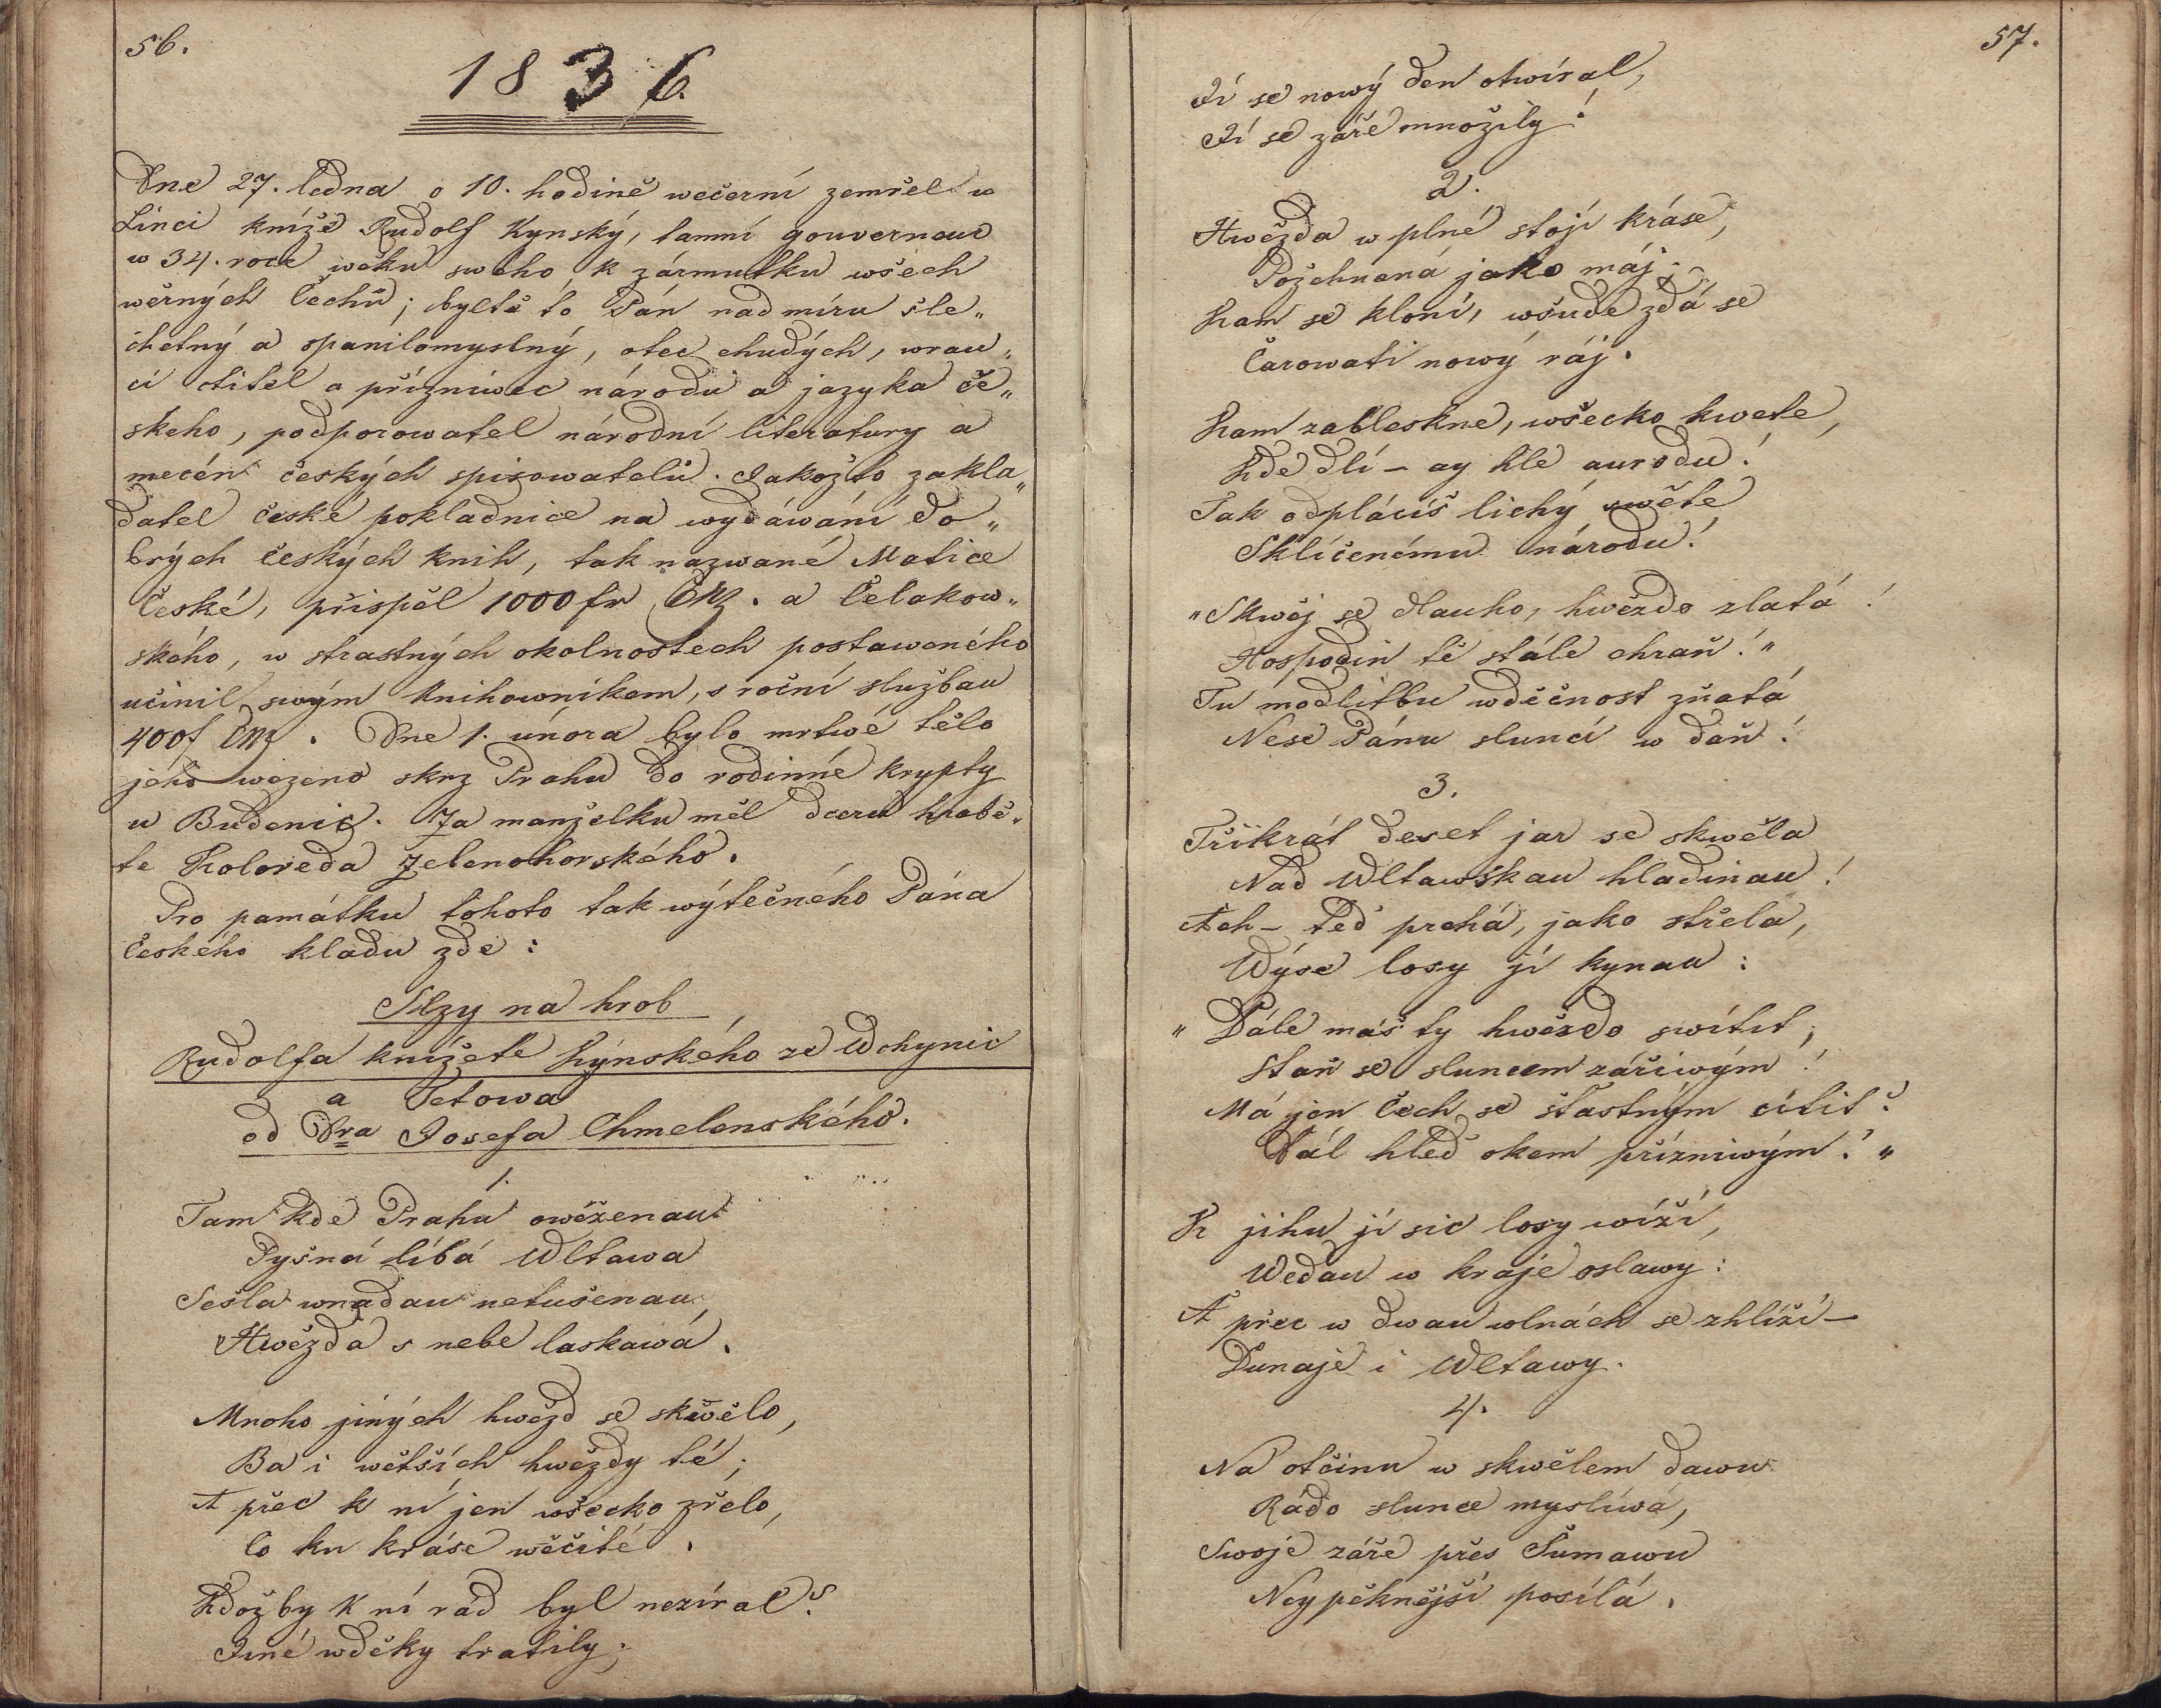 56.
1836.
Dne 27. ledna o 10. hodině wečerní zemřel w
Linci kníže Rudolf Kynský, tamní gouverneur
w 34. roce wěku swého k zármutku wšech
wěrných Čechů; byltě to Pán nad míru šle„
chetný a spanilomyslný, otec chudých, wrau„
cí ctitel a přízniwec národu a jazyka če„
skeho, podporowatel národní literatury a
mecén českých spisowatelů. Jakožto zakla„
datel české pokladnice na wydáwání do„
brých českých knih, tak nazwané Matice
České, přispěl 1000 fr CM. a Čelakow„
ského, w strastných okolnostech postaweného
učinil swým Knihowníkem, s roční službau
400f CM. Dne 1. února bylo mrtwé tělo
jeho wezeno skrz Prahu do rodinné krypty
u Budenic. Za manželku měl dceru hrabě„
te Koloreda Zelenohorského.
Pro památku tohoto tak wýtečného Pána
Českého kladu zde:
Slzy na hrob
Rudolfa knížete Kýnského ze Wchynic
a Tetowa
od Dra Josefa Chmelenského.
1.
Tam kde Prahu owěženau
Pyšná líbá Wltawa
Sešla wnadau netušenau
Hwězda s nebe laskawá.
Mnoho jiných hwězd se skwělo,
Ba i wětších hwězdy té;
A přec k ní jen wšecko zřelo,
Co ku kráse wěčité.
Kdož by k ní rád byl nezíral?
Jiné wděky tratily;
57.
Jí se nowý den otwíral,
Jí se záře množily!
2.
Hwězda w plné stojí kráse,
Požehnaná jako máj;
Kam se kloní, wšude zdá se
Čarowati nowý ráj.
Kam zableskne, wšecko kwete,
Kde dlí – ay hle aurodu!
Tak odplácíš lichý swěte
Sklíčenému národu!
„Skwěj se dlauho, hwězdo zlatá!
Hospodin tě stále chraň!„
Tu modlitbu wděčnost zňatá
Nese Pánu sluncí w daň!
3.
Třikrát deset jar se skwěla
Nad Wltawskau hladinau!
Ach – teď prchá, jako střela,
Wýse losy jí kynau:
„Dále máš ty hwězdo swítit,
Staň se sluncem zářiwým!
Má jen Čech se šťastným cítit?
Dál hleď okem přízniwým!„
K jihu jí sic losy wíží,
Wedau w kraje oslawy:
A přec w dwau wlnách se zhlíží –
Dunaje i Wltawy.
4.
Na otčinu w skwělem dawu
Rádo slunce myslíwá,
Swoje záře přes Šumawu
Neypěknější posílá.